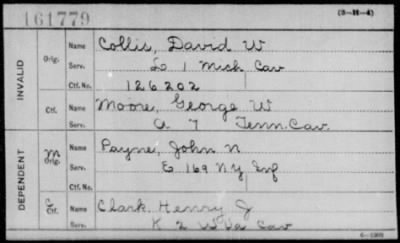 161779
(3-H-4)
INVALID
Orig. Name Collis, David W
Serv. L 1 Mich Cav
Ctf. No. 126202
Ctf. Name Moore, George W
Serv. A 7 Tenn. Cav.
DEPENDENT
M Orig. Name Payne, John N
Serv. E 169 N.Y. Inf
Ctf. No.
C Ctf. Name Clark, Henry J
Serv. K 2 W Va Cav